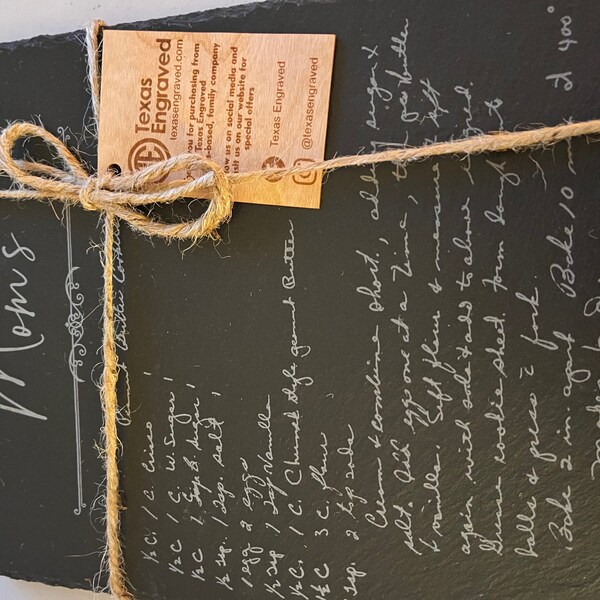 Mom's
Peanut Butter
½ C. 1 C. Crisco
½ C 1 C. W. Sugar
½ C 1 C B. Sugar
½ tsp. 1 tsp. salt
1 egg 2 eggs
½ tsp 1 tsp Vanilla
½ C. 1 C. Chunk style peanut Butter
1½ C 3 C. flour
1 tsp. 2 tsp soda
Cream & combine short., adding sugar &
salt. Add eggs one at a time, then peanut butter
& vanilla. Sift flour & measure sift
again with soda & add to above
Grease cookie sheet. Form dough
balls & press c̄ fork.
Bake 2 in. apart Bake 10 min at 400°
Makes
Texas
Engraved
texasengraved.com
you for purchasing from
Texas Engraved
-based, family company
us on social media and
visit us on our website for
special offers
Texas Engraved
@texasengraved